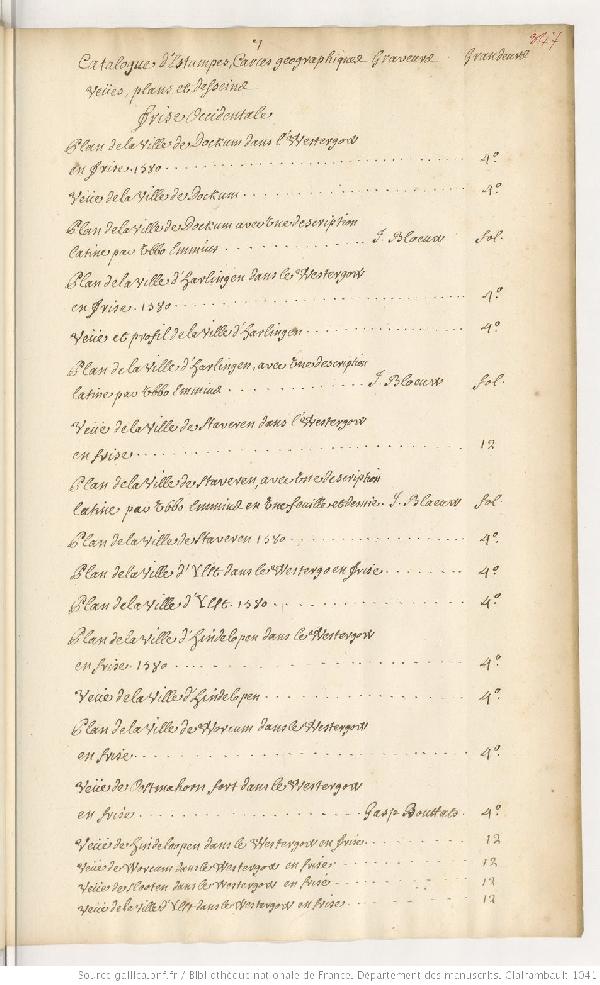 Catalogue d'Estampes, Cartes geographiques Graveurs Grandeurs
Veües, plans et desseins
Frise Occidentale
Plan de la Ville de Dockum dans l'Westergow
en Frise. 1580 4°.
Veüe de la Ville de Dockum 4°.
Plan de la Ville de Dockum avec Une description
latine par Ubbo Emmius J. Blaeuw fol.
Plan de la Ville d'Harlingen dans le Westergow
en Frise. 1580 4°.
Veüe et profil de la Ville d'Harlingen 4°.
Plan de la Ville d'Harlingen, avec Une description
latine par Ubbo Emmius J. Blaeuw fol.
Veüe de la Ville de Staveren dans l'Westergow
en frise 12
Plan de la Ville de Staveren, avec Une description
latine par Ubbo Emmius en Une feuille et demie. J. Blaeuw fol.
Plan de la Ville de Staveren 1580 4°.
Plan de la Ville d'Ylst dans le Westergo en Frise 4°.
Plan de la Ville d'Ylst. 1580 4°.
Plan de la Ville d'Hindelopen dans le Westergow
en frise. 1580 4°.
Veüe de la Ville d'Hindelopen 4°.
Plan de la Ville de Worcum dans le Westergow
en frise 4°.
Veüe de Oostmahorn fort dans le Westergow
en frise Gasp. Bouttats 4°.
Veüe de Hindeloopen dans le Westergow en frise 12
Veüe de Worcum dans le Westergow en frise 12
Veüe de Slooten dans le Westergow en frise 12
Veüe de la Ville d'Ylst dans le Westergow en frise 12
Source gallica.bnf.fr / Bibliothèque nationale de France. Département des manuscrits. Clairambault 1041